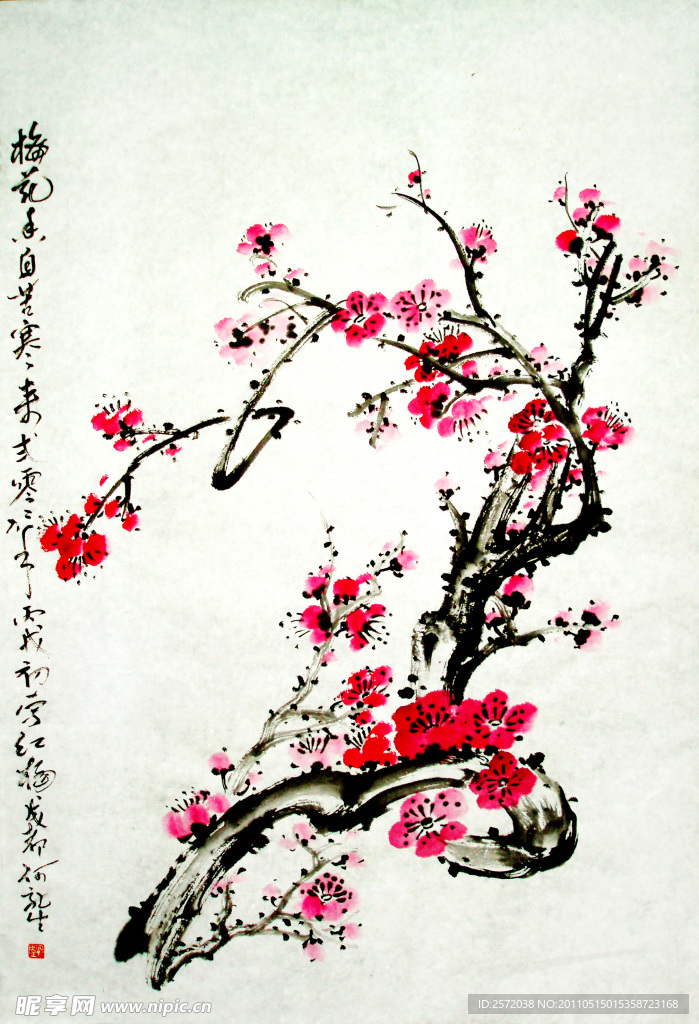 梅花香自苦寒来 弍零零六年 丙戌初写红梅 成都 何龙生
昵享网 www.nipic.cn
ID:2572038 NO:20110515015358723168